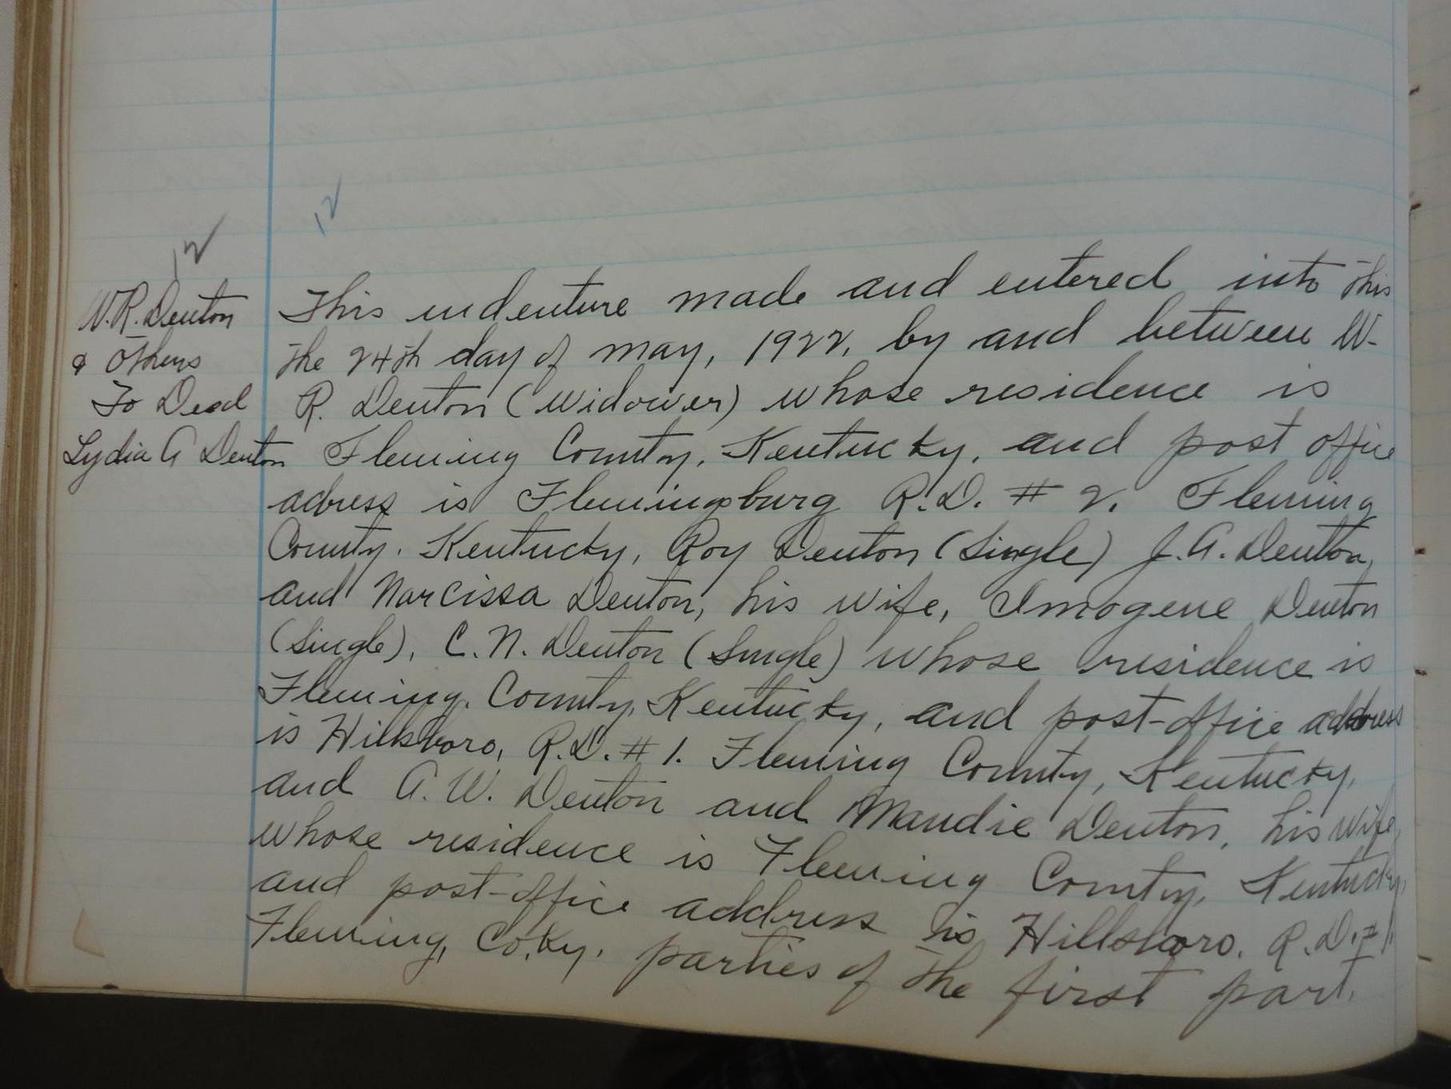 12
12
W.R. Denton
& Others
To Deed
Lydia A Denton
This indenture made and entered into this
the 24th day of May, 1922, by and between W.
R. Denton (Widower) whose residence is
Fleming County, Kentucky, and post office
adress is Flemingsburg R.D. # 2. Fleming
County, Kentucky, Roy Denton (Single) J.A. Denton,
and Narcissa Denton, his wife, Imogene Denton
(Single), C.N. Denton (Single) whose residence is
Fleming County, Kentucky, and post-office address
is Hillsboro, R.D. # 1. Fleming County, Kentucky,
and A.W. Denton and Maudie Denton, his wife,
whose residence is Fleming County, Kentucky,
and post-office address is Hillsboro, R.D. # 1.
Fleming, Co. Ky. parties of the first part.